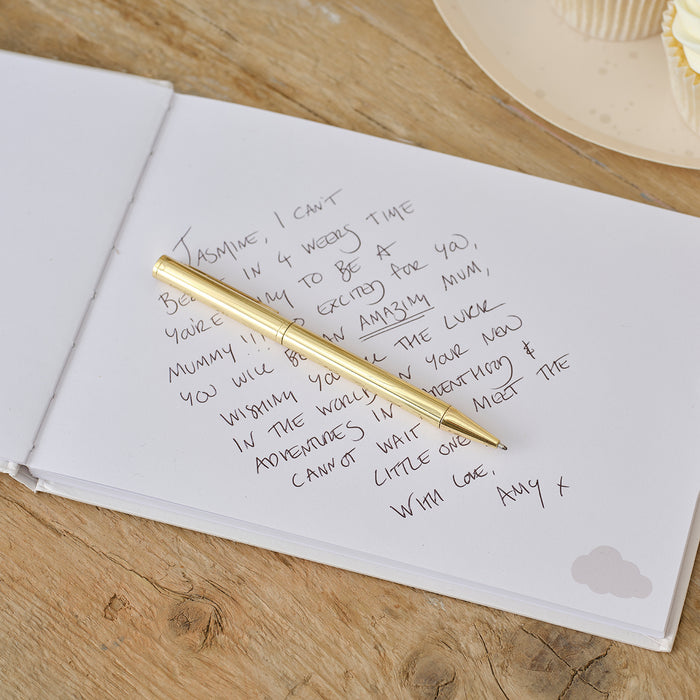 JASMINE, I CAN'T
IN 4 WEEKS TIME
YOU'RE TO BE A
MUMMY!!! SO EXCITED FOR YOU,
YOU WILL BE AN AMAZING MUM,
WISHING YOU THE LUCK
IN THE WORLD IN YOUR NEW
ADVENTURES IN &
CANNOT WAIT MEET THE
LITTLE ONE
WITH LOVE,
AMY X